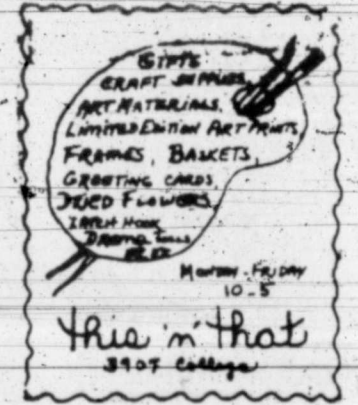 GIFTS
CRAFT SUPPLIES,
ART MATERIALS,
LIMITED EDITION ART PRINTS,
FRAMES, BASKETS,
GREETING CARDS,
DRIED FLOWERS,
LATCH HOOK,
MONDAY - FRIDAY
10 - 5
this 'n' that
3907 College